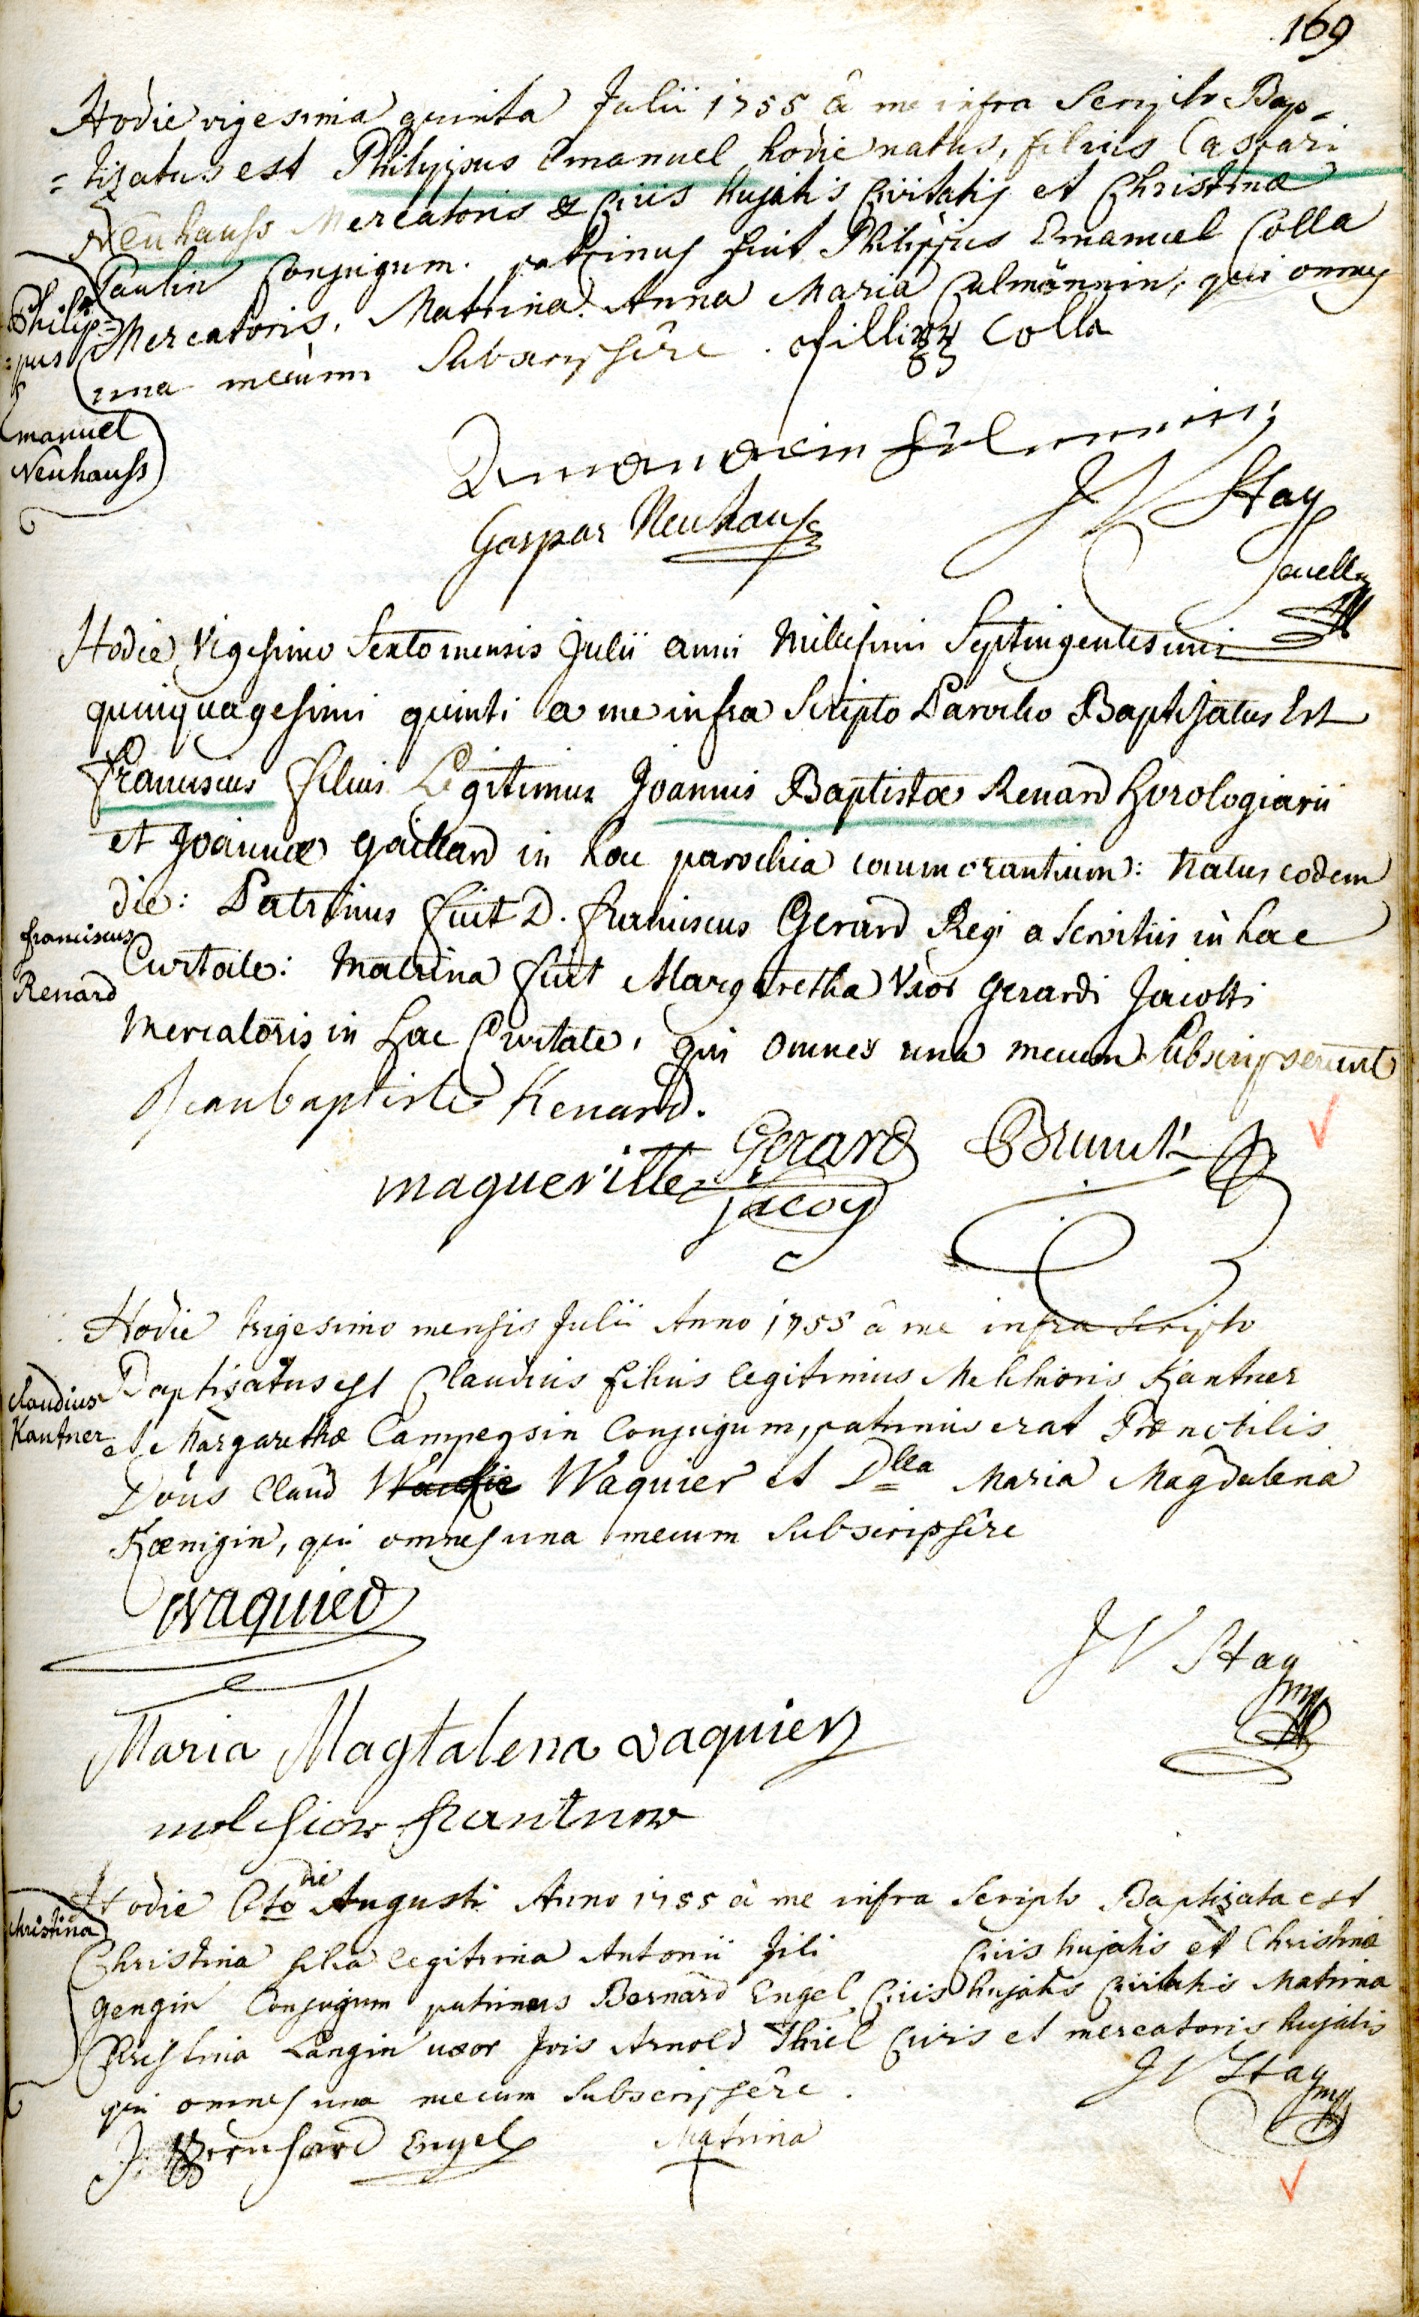 169
Hodie vigesima quinta Julii 1755 â me infra Scripto Bap=
=tizatus est Philippus Emanuel hodie natus, filius Caspari
Neuhauss Mercatoris & Civis hujatis Civitatis et Christinæ
Paulin Conjugum. patrinus fuit Philippus Emanuel Colla
Mercatoris, Matrina Anna Maria Culmännin, qui omnes
una mecum Subscripsêre.
Philip=
=pus
Emanuel
Neuhauss
fillipp Colla
Gaspar Neuhauss
J V Stay
Hodie Vigesimo Sexto mensis Julii anni Millesimi Septingentesimi
quinquagesimi quinti a me infra Scripto Parocho Baptisatus Est
franciscus filius Legitimus Joannis Baptistæ Renard horologiarii
et Joannæ Gaillard in hac parochia commorantium: natus eodem
die: Patrinus fuit D. franciscus Gerard Regi a Servitiis in hac
Civitate: Matrina fuit Margaretha Vxor Gerardi Jacotti
Mercatoris in hac Civitate, qui omnes una mecum Subscripserunt
franciscus
Renard
Jean baptiste Renard.
Gerard Brunck
magueritte jacoy
Hodie trigesimo mensis Julii Anno 1755 â me infra Scripto
Baptizatus est Claudius filius legitimus Melchioris Kantner
et Margarethæ Campeysin Conjugum, patrinus erat Prænobilis
Dōnus Claud Waquier et Dlla Maria Magdalena
Kœnigin, qui omnes una mecum Subscripsêre
Claudius
Kantner
Waquier
J V Stay
Maria Magtalena vaquier
melchior Kantner
Hodie 6to die Augusti Anno 1755 â me infra Scripto Baptizata est
Christina filia legitima Antonii Jili Civis hujatis et Christinæ
Gengin Conjugum patrinus Bernard Engel Civis hujatis Civitatis Matrina
Christina Langin uxor Jois Arnold Thiel Civis et mercatoris hujatis
qui omnes una mecum Subscripsêre.
Christina
J V Stay
J: Bernhard Engel
Matrina